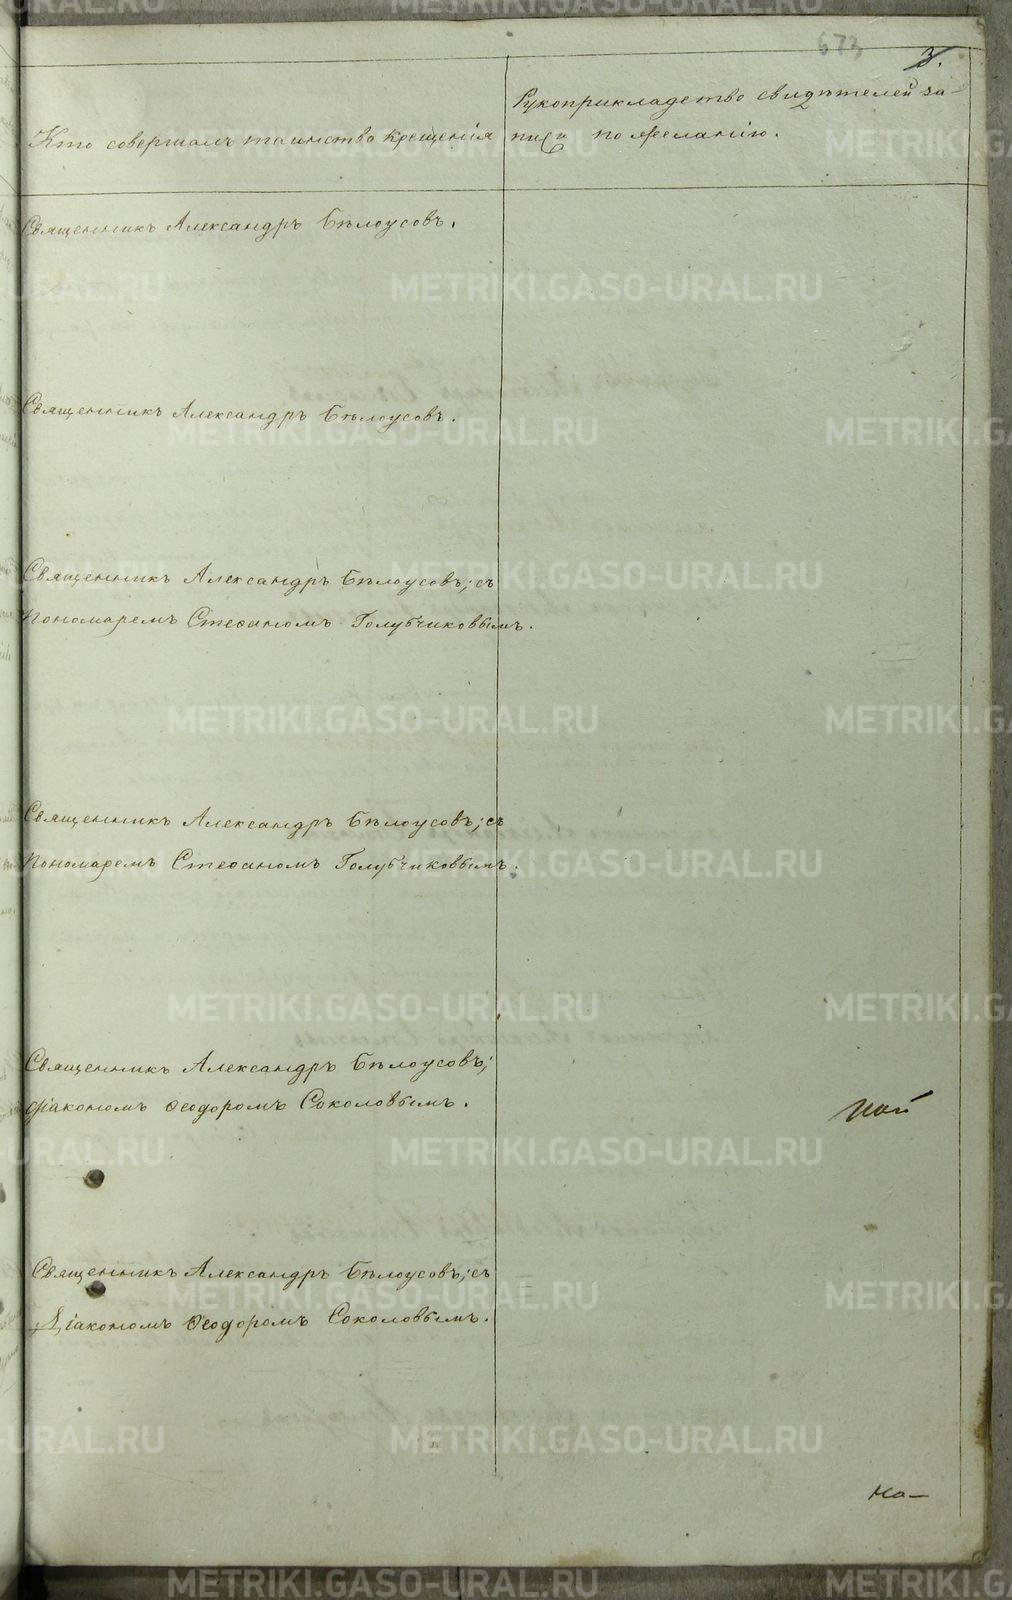 673
3.
Кто совершалъ таинство крещенія
Рукоприкладство свидѣтелей за-
писи по желанію.
Священникъ Александръ Бѣлоусовъ.
Священникъ Александръ Бѣлоусовъ.
Священникъ Александръ Бѣлоусовъ; съ
Пономаремъ Стефаномъ Голубчиковымъ.
Священникъ Александръ Бѣлоусовъ; съ
Пономаремъ Стефаномъ Голубчиковымъ.
Священникъ Александръ Бѣлоусовъ;
Діакономъ Ѳеодоромъ Соколовымъ.
Священникъ Александръ Бѣлоусовъ; съ
Діакономъ Ѳеодоромъ Соколовымъ.
на-
METRIKI.GASO-URAL.RU